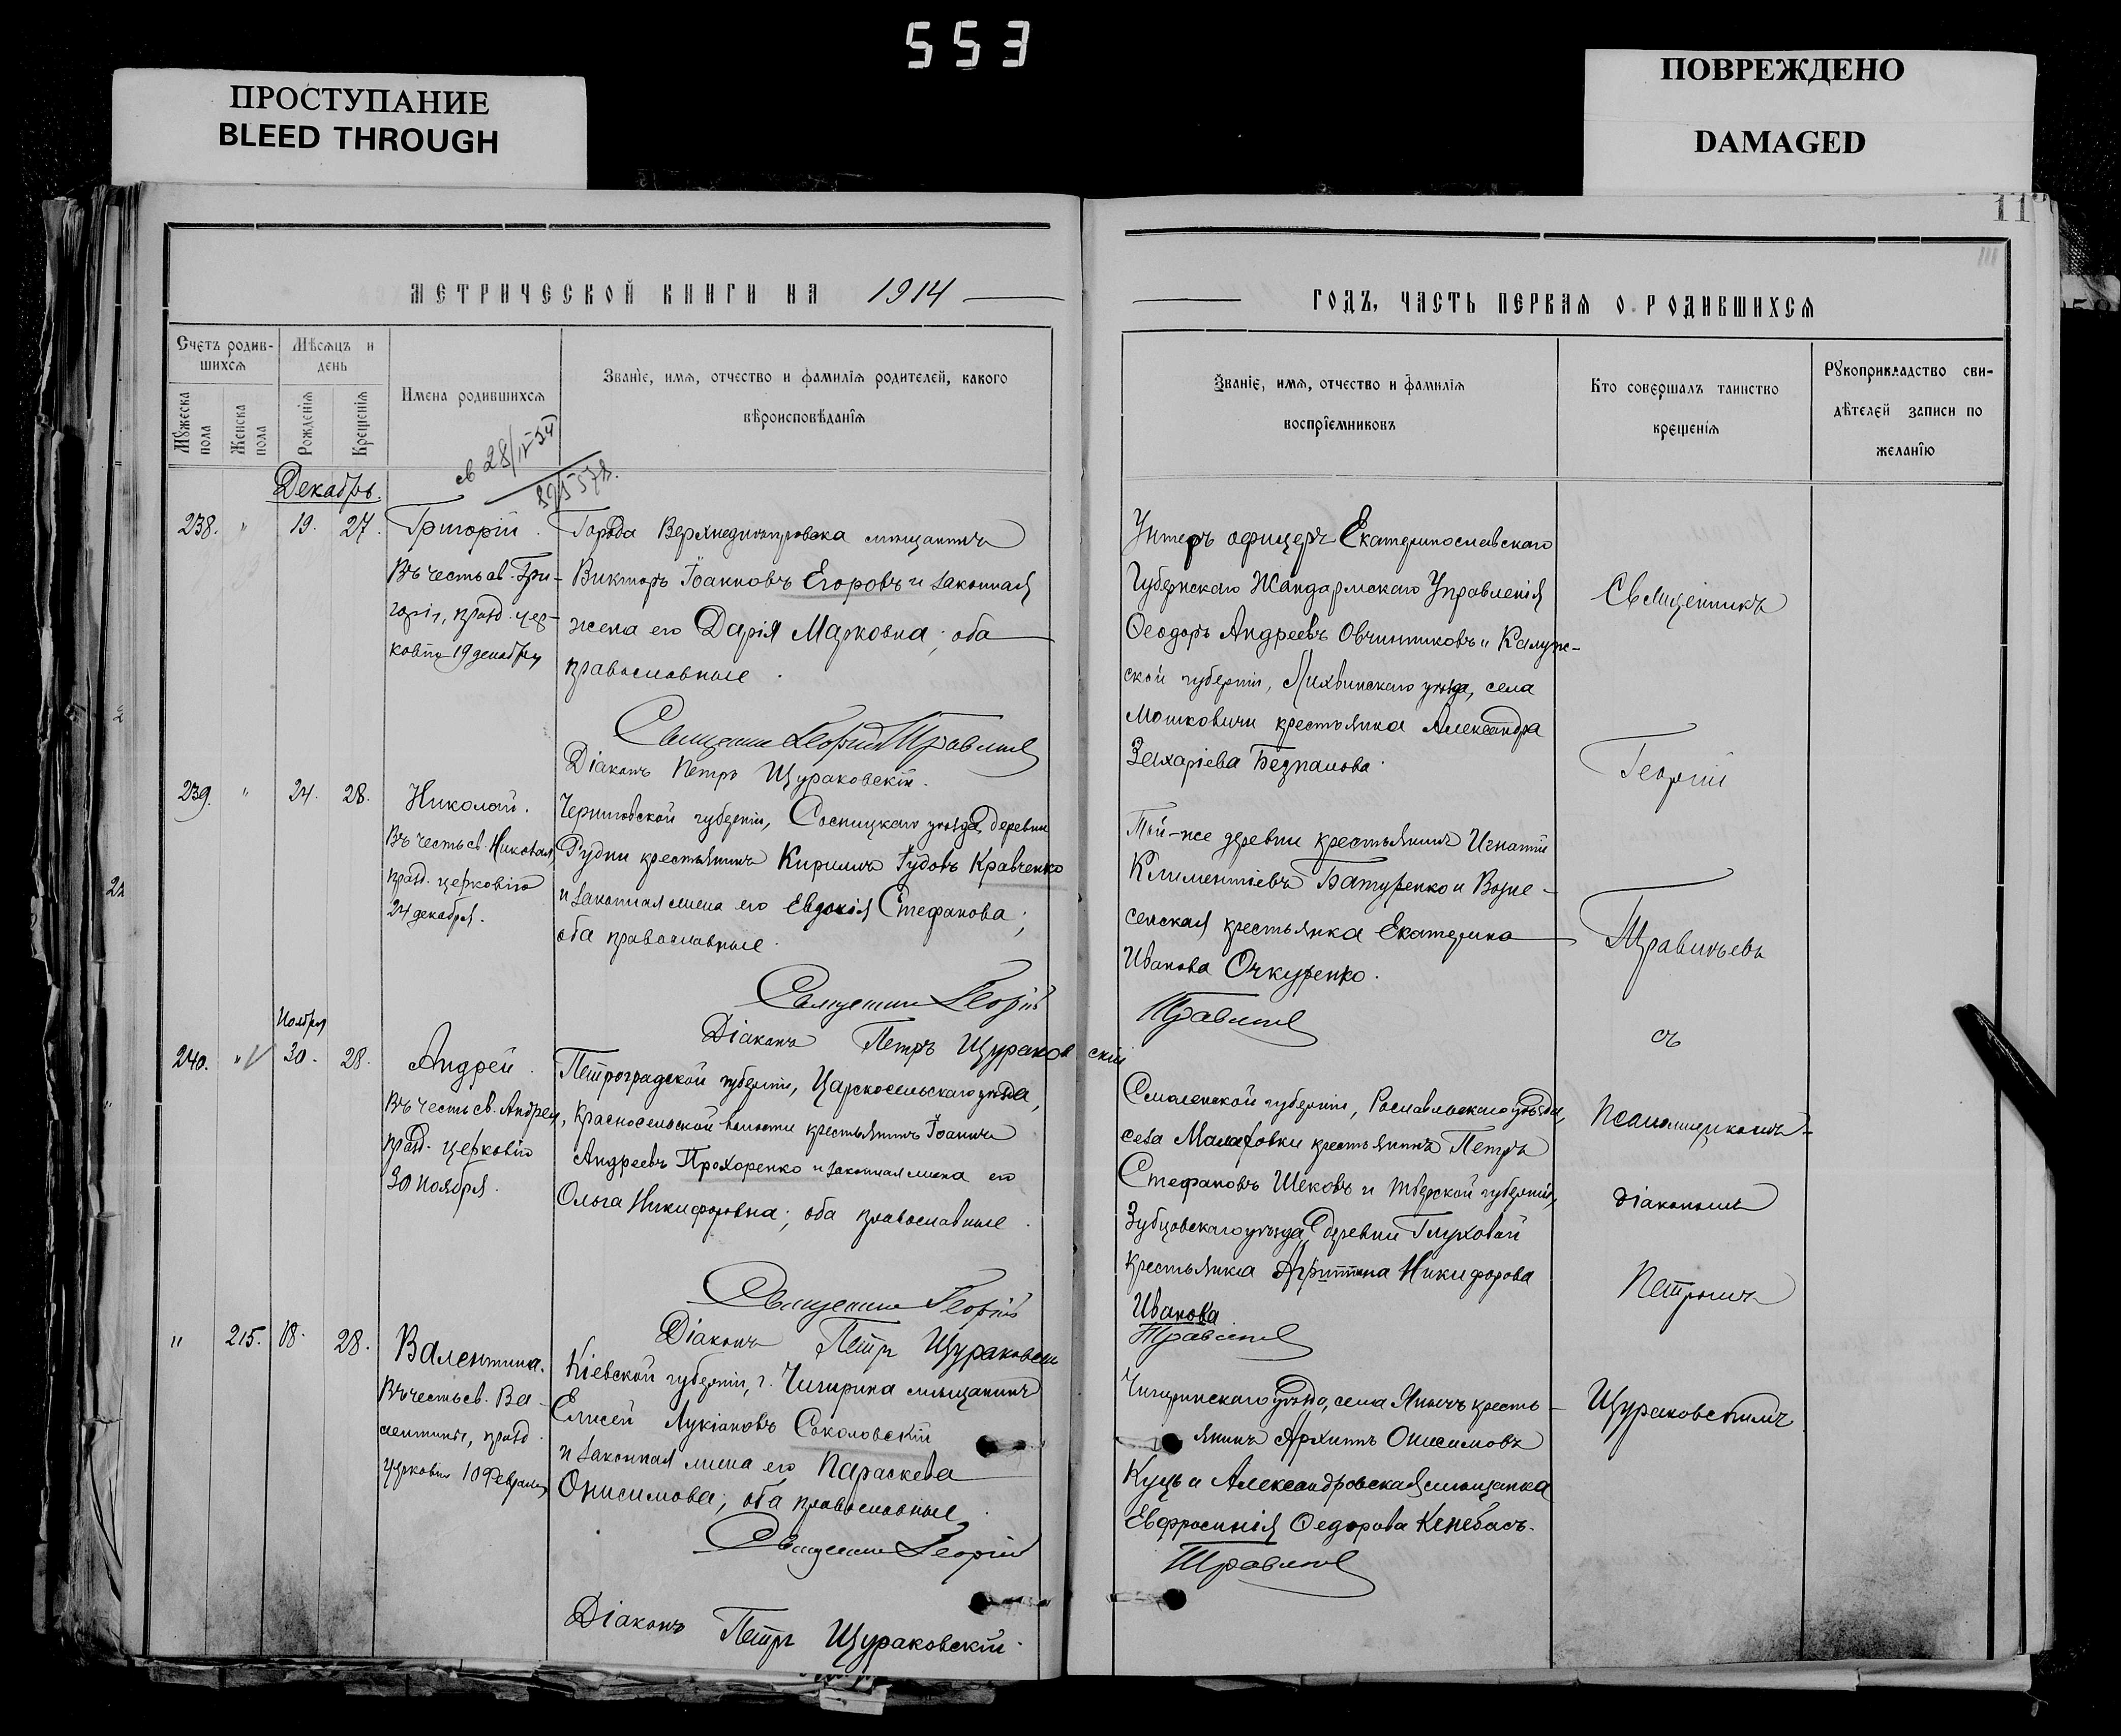 553
ПРОСТУПАНИЕ
BLEED THROUGH
ПОВРЕЖДЕНО
DAMAGED
11
111
МЕТРИЧЕСКОЙ КНИГИ НА 1914
Счетъ родив-
шихсѧ
Мѣсѧцъ и
день
Мужеска пола
Женска пола
Рожденіѧ
Крещеніѧ
Имена родившихсѧ
Званіе, имѧ, отчество и фамиліѧ родителей, какого
вѣроисповѣданіѧ
св 28/IV-54
Декабрь.
238. " 19. 27.
Григорій.
Въ честь св. Гри-
горія, празд. цер-
ковію 19 декабря
Города Верхнеднѣпровска мѣщанинъ
Викторъ Іоанновъ Егоровъ и законная
жена его Дарія Марковна; оба
православные.
Священникъ Георгій Правильевъ
Діаконъ Петръ Щураковскій.
239. " 24. 28.
Николай.
Въ честь св. Николая,
празд. церковію
24 декабря.
Черниговской губерніи, Сосницкаго уѣзда, деревни
Рудни крестьянинъ Кириллъ Іудовъ Кравченко
и законная жена его Евдокія Стефанова;
оба православные.
Священникъ Георгій
Діаконъ Петръ Щураковскій
Ноября
240. " 30. 28.
Андрей.
Въ честь св. Андрея,
празд. церковію
30 ноября.
Петроградской губерніи, Царскосельскаго уѣзда,
Красносельской волости крестьянинъ Іоаннъ
Андреевъ Прохоренко и законная жена его
Ольга Никифоровна; оба православные.
Священникъ Георгій
Діаконъ Петръ Щураковскій
" 215. 18. 28.
Валентина.
Въ честь св. Ва-
лентины, празд.
церковію 10 Февраля
Кіевской губерніи, г. Чигирина мѣщанинъ
Елисей Лукіановъ Соколовскій
и законная жена его Параскева
Онисимова; оба православные.
Священникъ Георгій
Діаконъ Петръ Щураковскій.
ГОДЪ, ЧАСТЬ ПЕРВАѦ О РОДИВШИХСѦ
Званіе, имѧ, отчество и фамиліѧ
воспріемниковъ
Кто совершалъ таинство
крещеніѧ
Рукоприкладство сви-
дѣтелей записи по
желанію
Унтеръ офицеръ Екатеринославскаго
Губернскаго Жандармскаго Управленія
Ѳеодоръ Андреевъ Овчинниковъ и Калуж-
ской губерніи, Лихвинскаго уѣзда, села
Мошковичи крестьянка Александра
Захаріева Безпалова.
Той-же деревни крестьянинъ Игнатій
Климентіевъ Батуренко и Возне-
сенская крестьянка Екатерина
Иванова Очкуренко.
Правильевъ
Смоленской губерніи, Рославльскаго уѣзда,
села Малаховки крестьянинъ Петръ
Стефановъ Шековъ и Тверской губерніи,
Зубцовскаго уѣзда, деревни Глуховой
крестьянка Агриппина Никифорова
Иванова
Правильевъ
Чигиринскаго уѣзда, села Яничъ кресть-
янинъ Архипъ Онисимовъ
Куць и Александровская мѣщанка
Евфросинія Ѳедорова Кенебасъ.
Правильевъ
Священникъ
Георгій
Правильевъ
съ
Псаломщикомъ-
діакономъ
Петромъ
Щураковскимъ